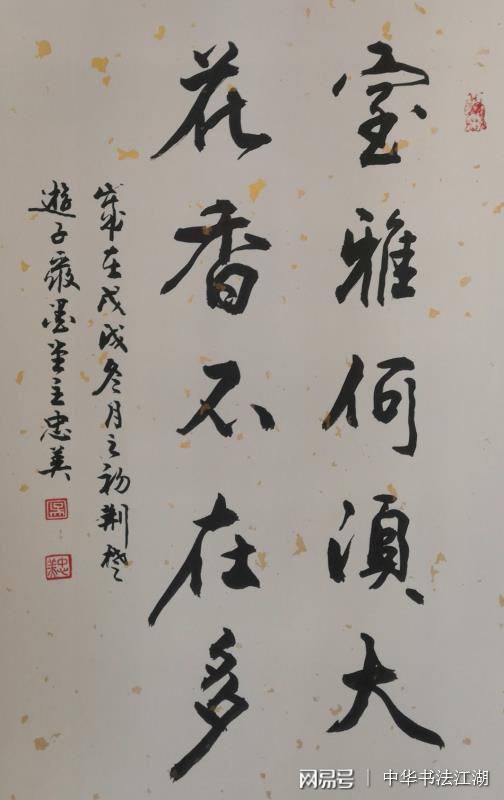 室雅何须大
花香不在多
岁在戊戌冬月之初荆楚
游子聚墨堂主忠英
网易号 | 中华书法江湖